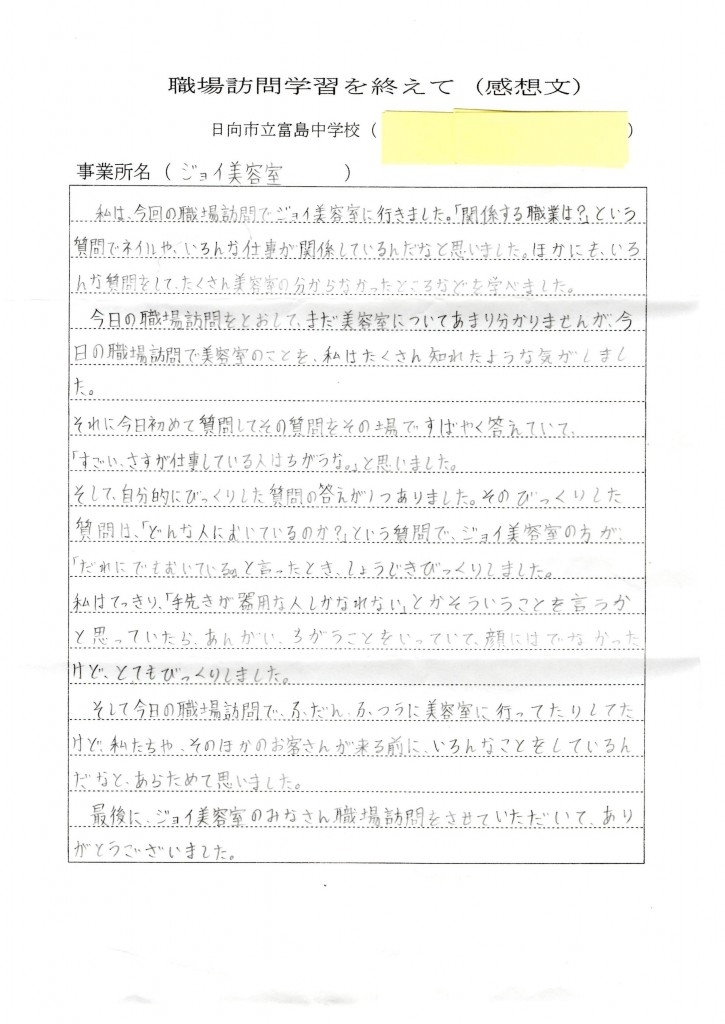 職場訪問学習を終えて（感想文）
日向市立富島中学校（　　　　）
事業所名（ジョイ美容室　　　）
私は、今回の職場訪問でジョイ美容室に行きました。「関係する職業は？」という
質問でネイルや、いろんな仕事が関係しているんだなと思いました。ほかにも、いろ
んな質問をして、たくさん美容室の分からなかったところなどを学べました。
今日の職場訪問をとおして、まだ美容室についてあまり分かりませんが、今
日の職場訪問で美容室のことを、私はたくさん知れたような気がしまし
た。
それに今日初めて質問してその質問をその場ですばやく答えていて、
「すごい、さすが仕事している人はちがうな。」と思いました。
そして、自分的にびっくりした質問の答えが1つありました。そのびっくりした
質問は、「どんな人にむいているのか？」という質問で、ジョイ美容室の方が、
「だれにでもむいている。」と言ったとき、しょうじきびっくりしました。
私はてっきり、「手先きが器用な人しかなれない」とかそういうことを言うか
と思っていたら、あんがい、ちがうことをいっていて、顔にはでなかった
けど、とてもびっくりしました。
そして今日の職場訪問で、ふだん、ふつうに美容室に行ってたりしてた
けど、私たちや、そのほかのお客さんが来る前に、いろんなことをしているん
だなと、あらためて思いました。
最後に、ジョイ美容室のみなさん職場訪問をさせていただいて、あり
がとうございました。